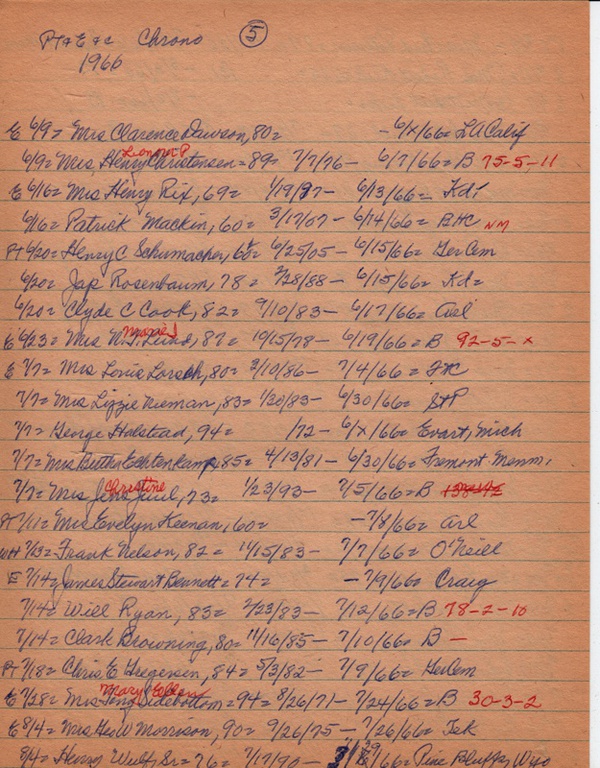 Pt & E &c Chrono ⑤
1966
E 6/9= Mrs Clarence Dawson, 80= - 6/x/66= LA Calif
6/9= Mrs, Henry Christensen= 89= 7/7/76- 6/7/66= B 75-5-11
Lenora P
E 6/16= Mrs Henry Rix, 69= 1/19/97- 6/13/66=
6/16= Patrick Mackin, 60= 3/17/07- 6/14/66= BHC NM
Pt 6/20= Henry C Schumacher, 60= 6/25/05- 6/15/66= GerCem
6/20= Jap Rosenbaum, 78= 2/28/88- 6/15/66=
6/20= Clyde C Cook, 82= 9/10/83- 6/17/66= Arl
E 6/23= Mrs Lund, 87= 10/15/78- 6/19/66= B 92-5-x
E 7/7= Mrs Louie Lorsch, 80= 2/10/86- 7/4/66=
7/7= Mrs Lizzie Nieman, 83= 1/20/83- 6/30/66= StP
7/7= George Halstead, 94= /72- 6/x/66= Evart, Mich
7/7= Mrs Bertha Echtenkamp, 85= 4/13/81- 6/30/66= Fremont Menn.
7/7= Mrs Jens Juul, 73= 1/23/93- 7/5/66= B
Christine
Pt 7/11= Mrs Evelyn Keenan, 60= -7/8/66= Arl
WH 7/13= Frank Nelson, 82= 11/15/83- 7/7/66= O'Neill
E 7/14= James Stewart Bennett= 74= -7/9/66= Craig
7/14= Will Ryan, 83= 2/23/83- 7/12/66= B 78-2-10
7/14= Clark Browning, 80= 11/16/85- 7/10/66= B -
Pt 7/18= Chris E Gregersen, 84= 5/3/82- 7/9/66= GerCem
E 7/28= Mrs Sidebottom= 94= 8/26/71- 7/24/66= B 30-3-2
Mary Ellen
E 8/4= Mrs Geo W Morrison, 90= 9/26/75- 7/26/66= Tek
8/4= Henry Wulf, Sr= 76= 7/17/90- /66= Pine Bluffs, Wyo